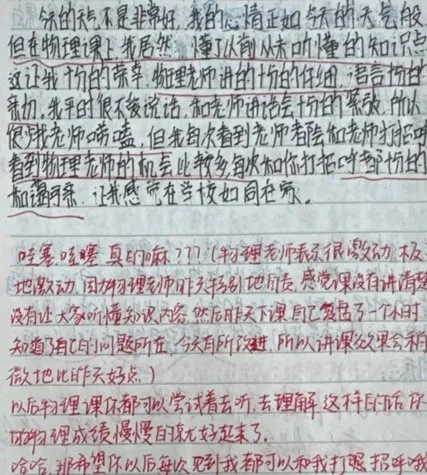 今天的天气不是非常好,我的心情正如今天的天气般
但在物理课上我居然懂了以前从未听懂的知识点
这让我十份的荣幸 物理老师讲的十份的仔细,语言十份的
亲切,我平时很不爱说话,和老师讲话会十份的紧张,所以
很少找老师唠嗑,但我每次看到老师都会和老师打招呼
看到物理老师的机会比较多每次和你打招呼都十份的
和蔼可亲,让我感觉在学校如同在家。
哇塞哇塞 真的嘛???(物理老师表示很激动 极
地激动 因为物理老师昨天特别地自责,感觉课没有讲清楚
没有让大家听懂知识内容 然后昨天下课自己复盘了一个小时
知道了自己的问题所在,今天有所改进,所以讲课效果会稍
微地比昨天好点)
以后物理课你都可以尝试着去听,去理解 这样的话你
的物理成绩慢慢的就好起来了。
哈哈 那希望你以后每次见到我都可以和我打照招呼哦